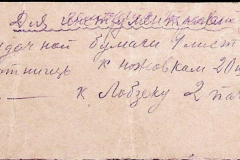 Для инструментальной
дачной бумаги 1 лист
отниць к ножовкам 20 ш
— к Лобзеку 2 пач